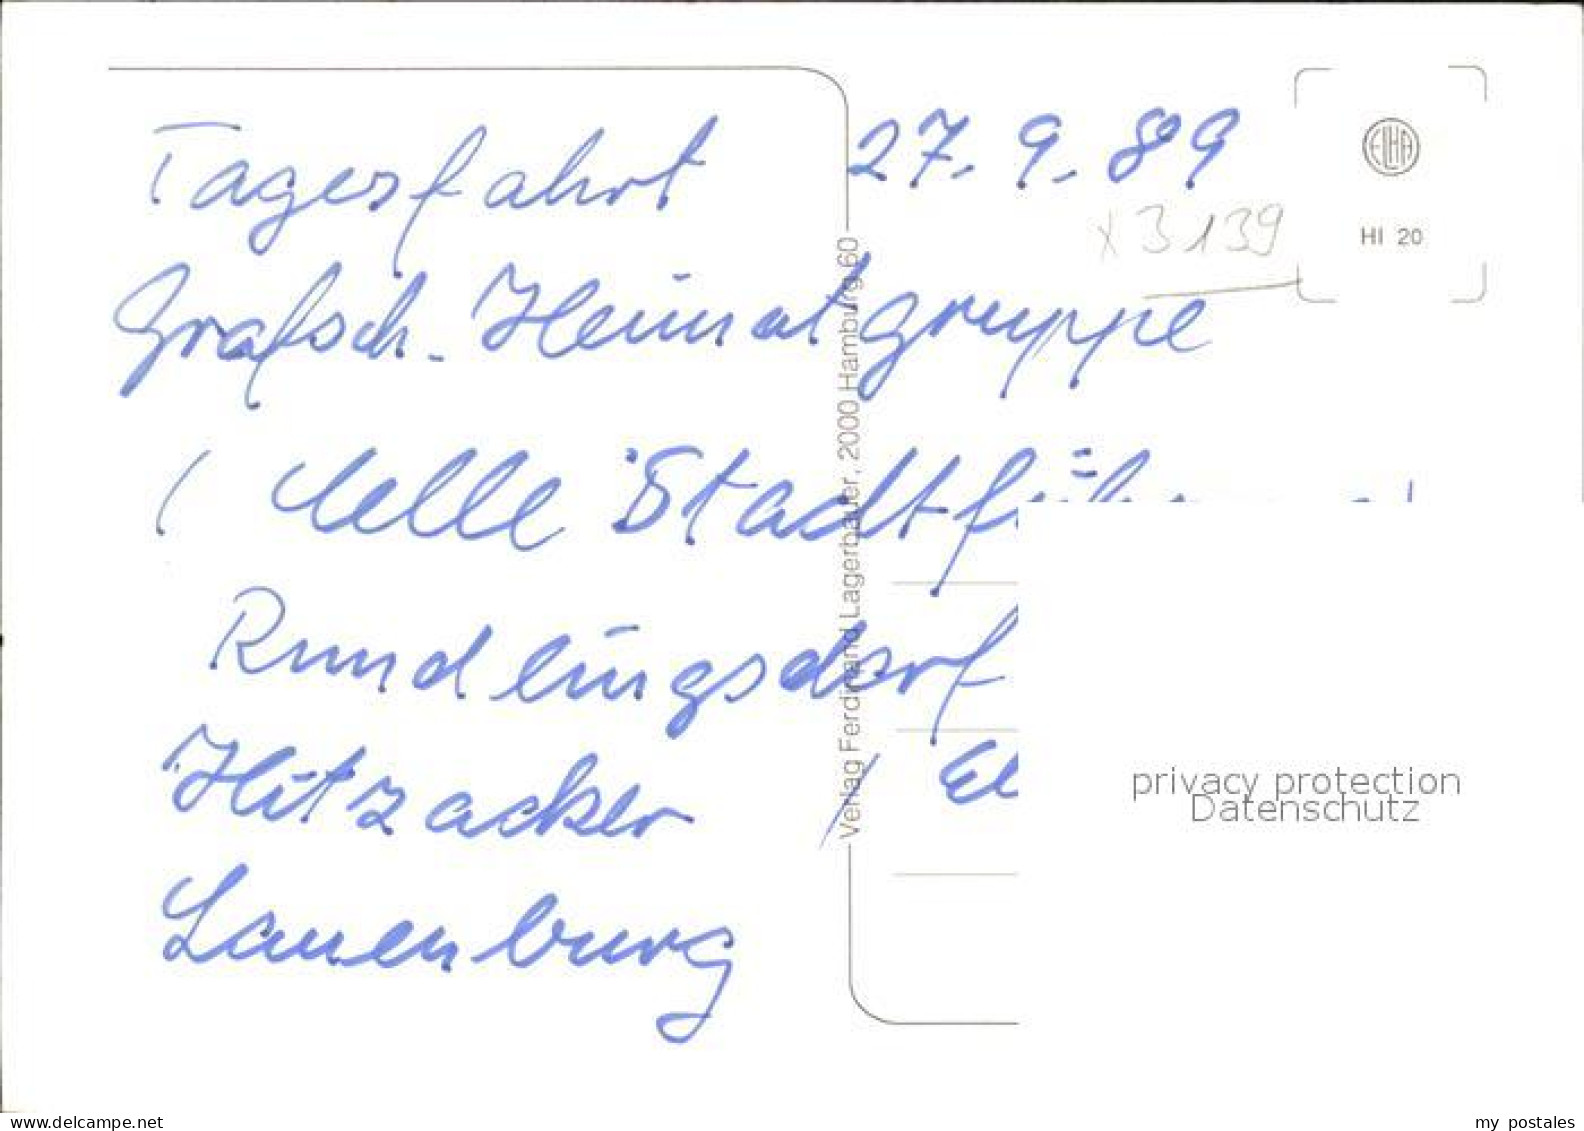 Tagesfahrt 27. 9. 89
x 3139
Grafsch. Heimatgruppe
( Celle Stadtführung
Rundlingsdorf
Hitzacker / El
Lauenburg
Verlag Ferdinand Lagerbauer, 2000 Hamburg 60
ELHA
HI 20
privacy protection
Datenschutz
www.delcampe.net
my_postales